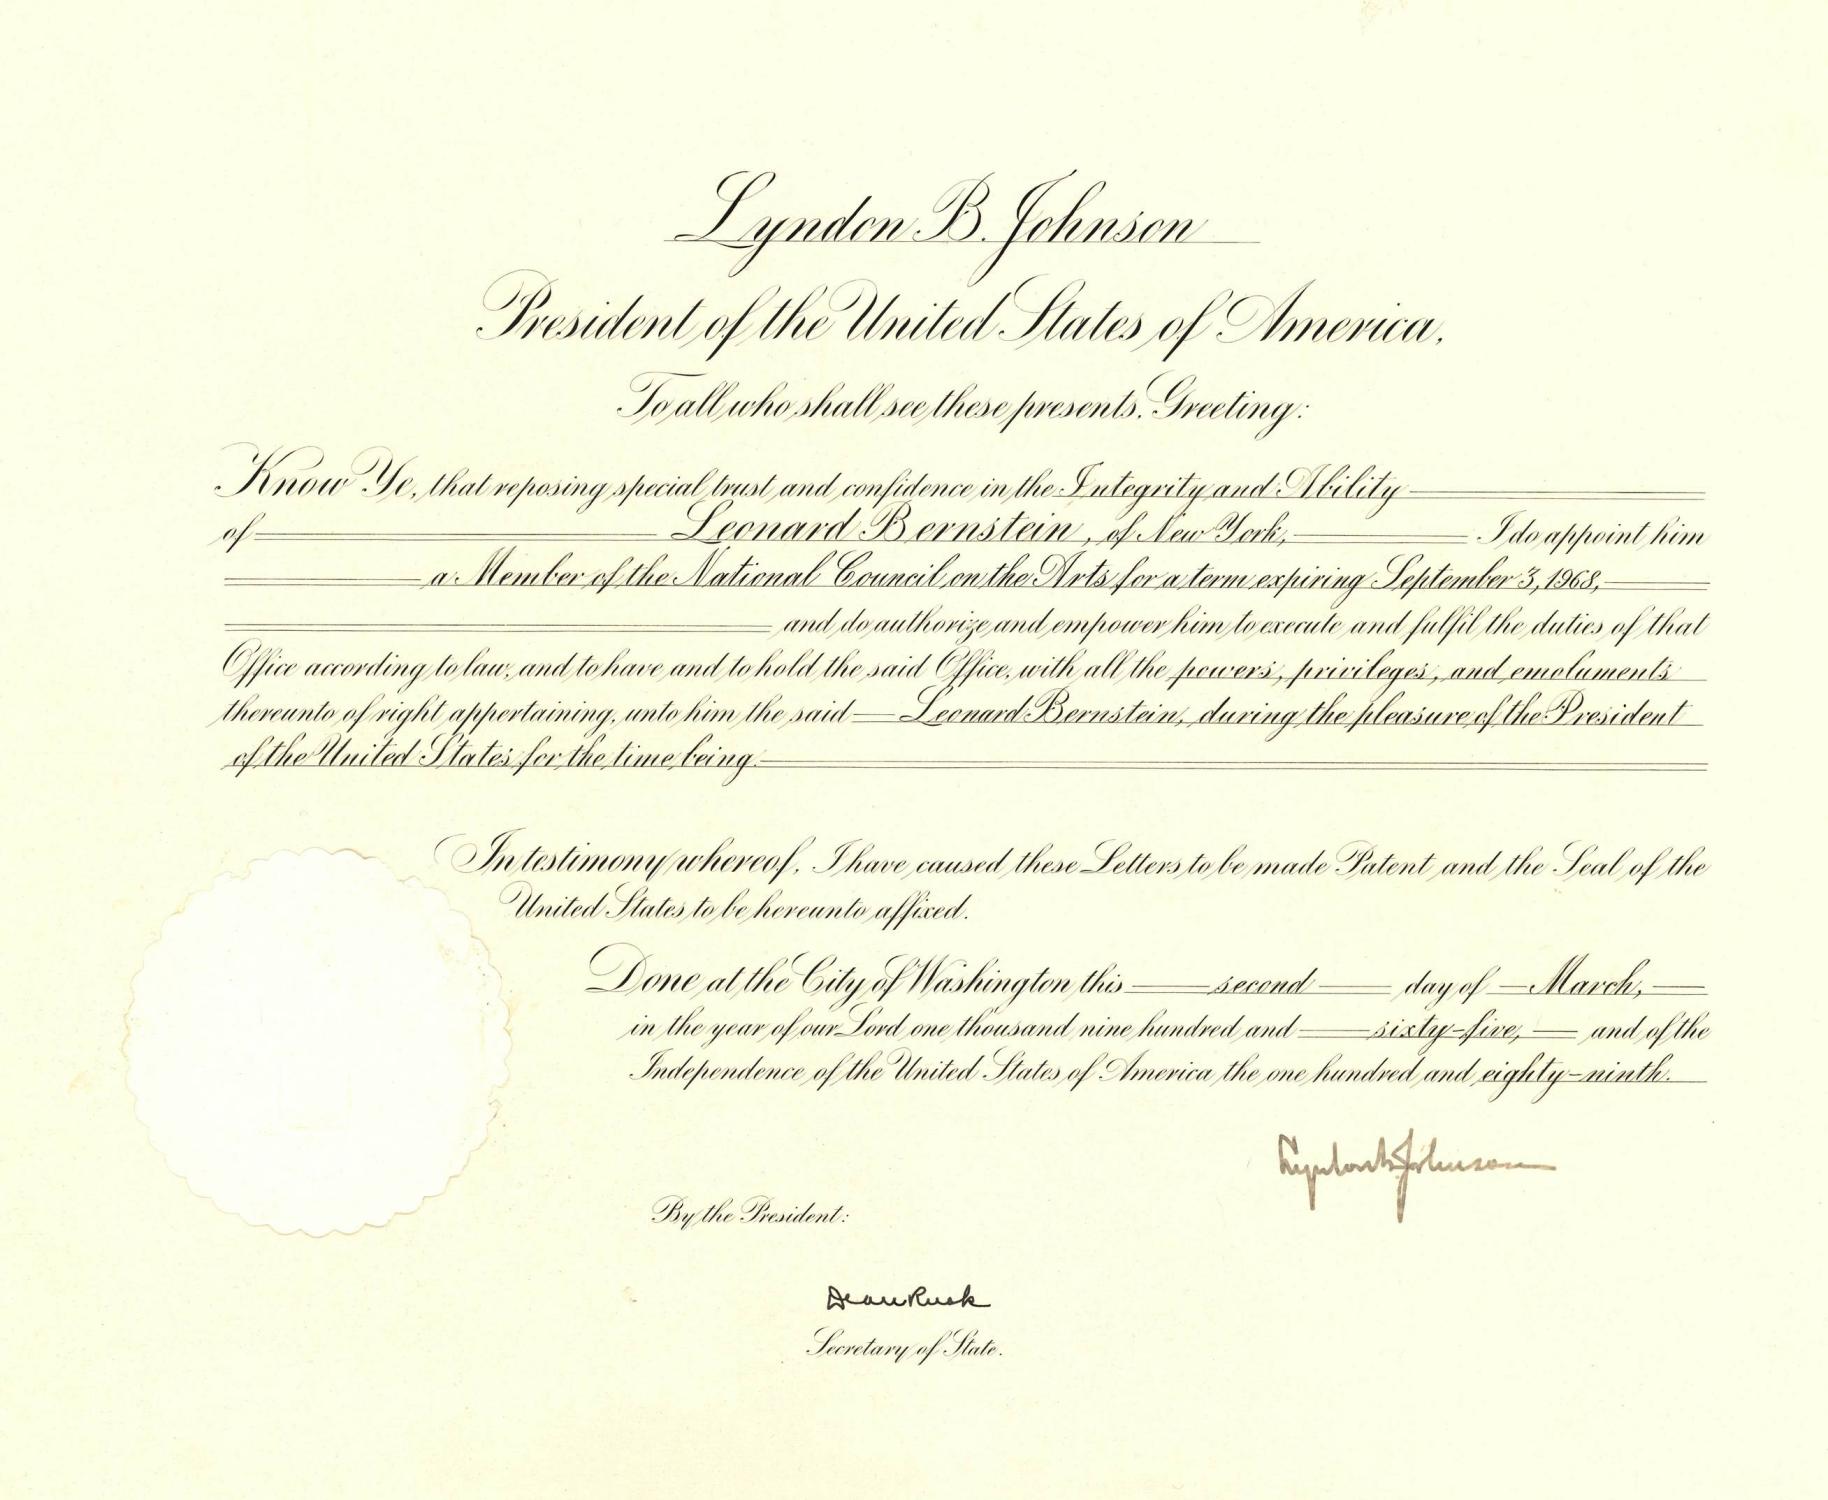 Lyndon B. Johnson
President of the United States of America.
To all who shall see these presents, Greeting:
Know Ye, that reposing special trust and confidence in the Integrity and Ability
of Leonard Bernstein, of New York, I do appoint him
a Member of the National Council on the Arts for a term expiring September 3, 1968,
and do authorize and empower him to execute and fulfil the duties of that
Office according to law, and to have and to hold the said Office, with all the powers, privileges, and emoluments
thereunto of right appertaining, unto him the said Leonard Bernstein, during the pleasure of the President
of the United States for the time being.
In testimony whereof, I have caused these Letters to be made Patent and the Seal of the
United States to be hereunto affixed.
Done at the City of Washington this second day of March,
in the year of our Lord one thousand nine hundred and sixty-five, and of the
Independence of the United States of America the one hundred and eighty-ninth.
Lyndon B. Johnson
By the President:
Dean Rusk
Secretary of State.